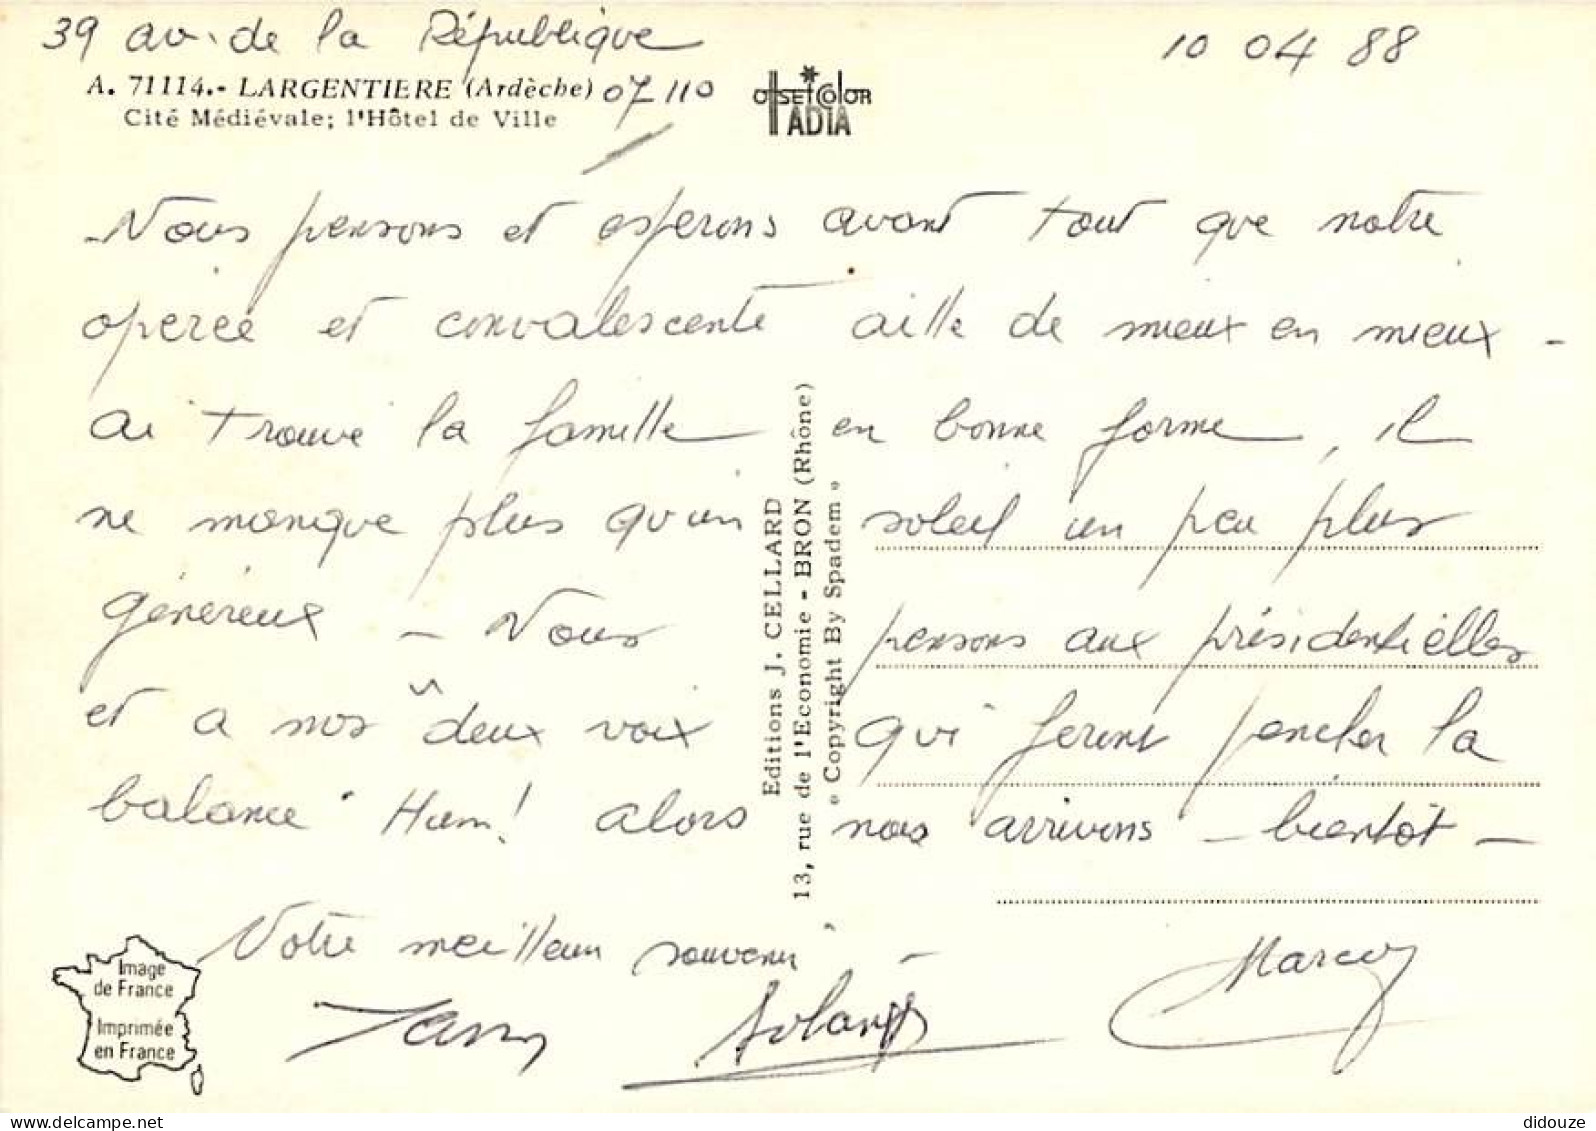 39 av. de la République
10 04 88
A. 71114.- LARGENTIERE (Ardèche) 07 110
Cité Médiévale; l'Hôtel de Ville
OFFSETCOLOR
ADIA
Nous pensons et esperons avant tout que notre
operée et convalescente aille de mieux en mieux -
ai trouvé la famille en bonne forme, il
ne manque plus qu'un soleil un peu plus
généreux - Nous pensons aux présidentielles
et a nos deux voix qui feront pencher la
balance. Hum! alors nous arrivons - bientôt -
Votre meilleur souvenir -
Solange
Marcey
Editions J. CELLARD
13, rue de l'Economie - BRON (Rhône)
« Copyright By Spadem »
Image
de France
Imprimée
en France
delcampe.net
didouze